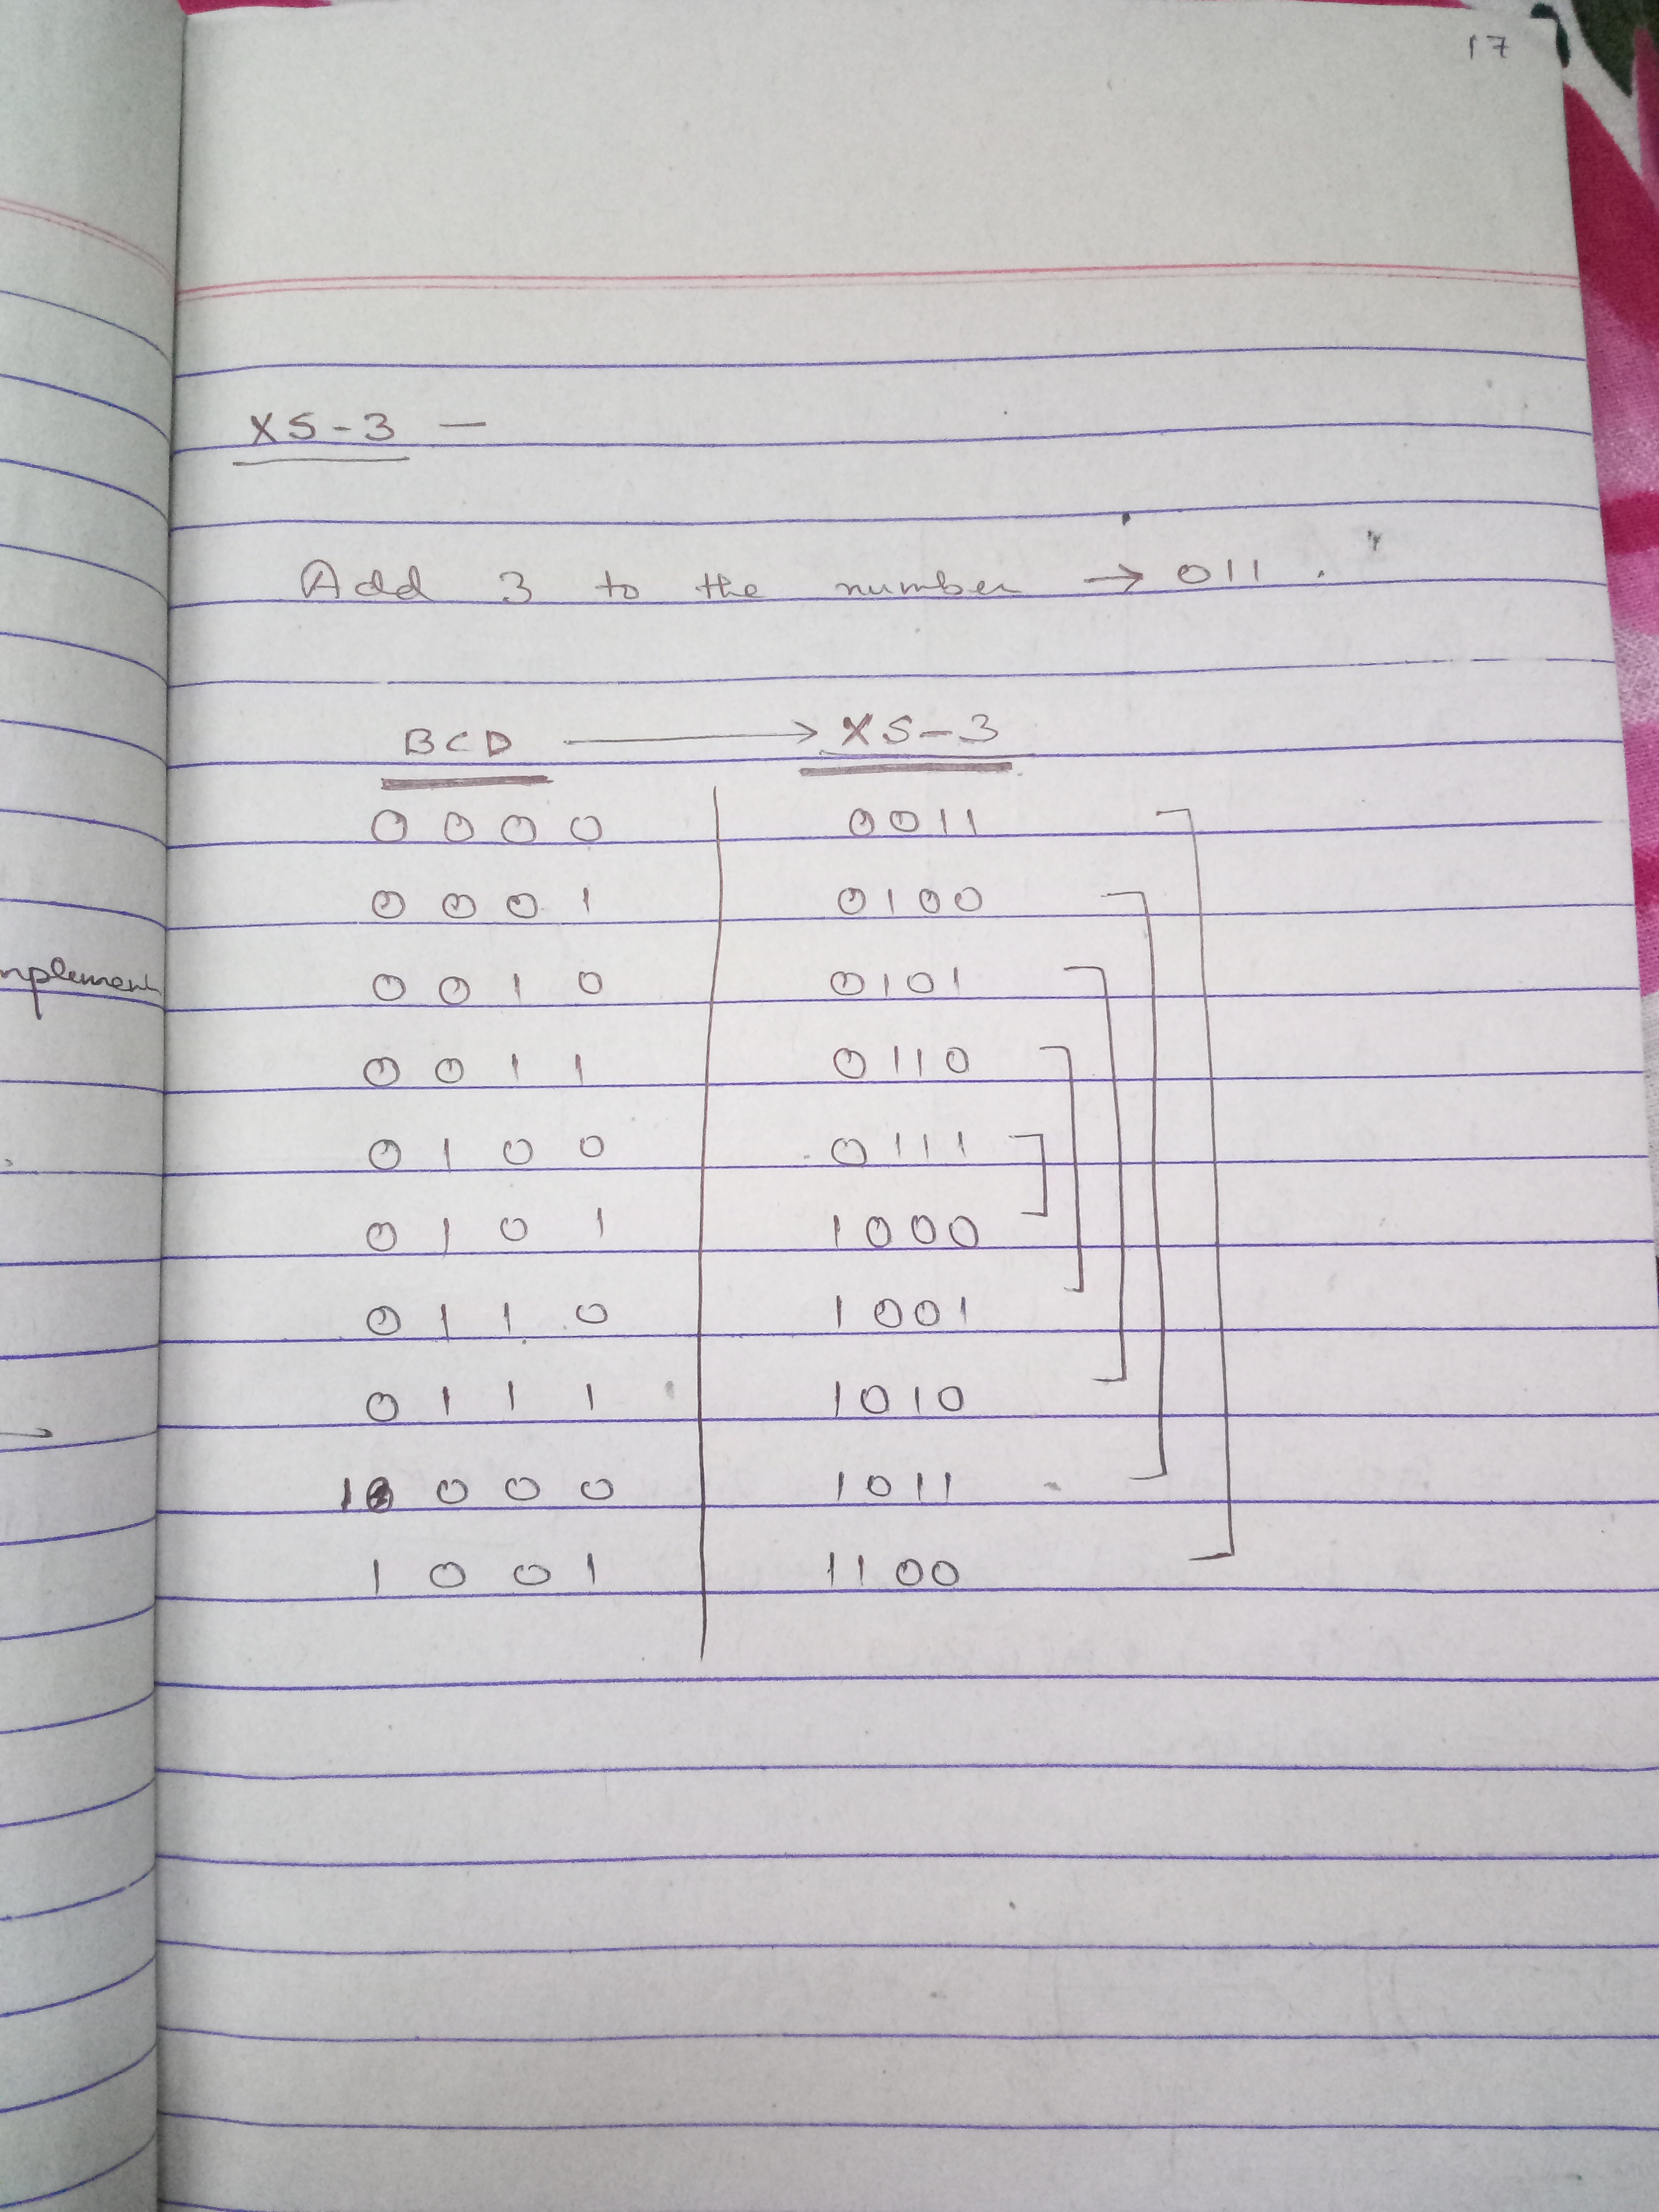 17
XS-3 —
Add 3 to the number → 011.
BCD → XS-3
0000 0011
0001 0100
0010 0101
0011 0110
0100 0111
0101 1000
0110 1001
0111 1010
1000 1011
1001 1100
mplement